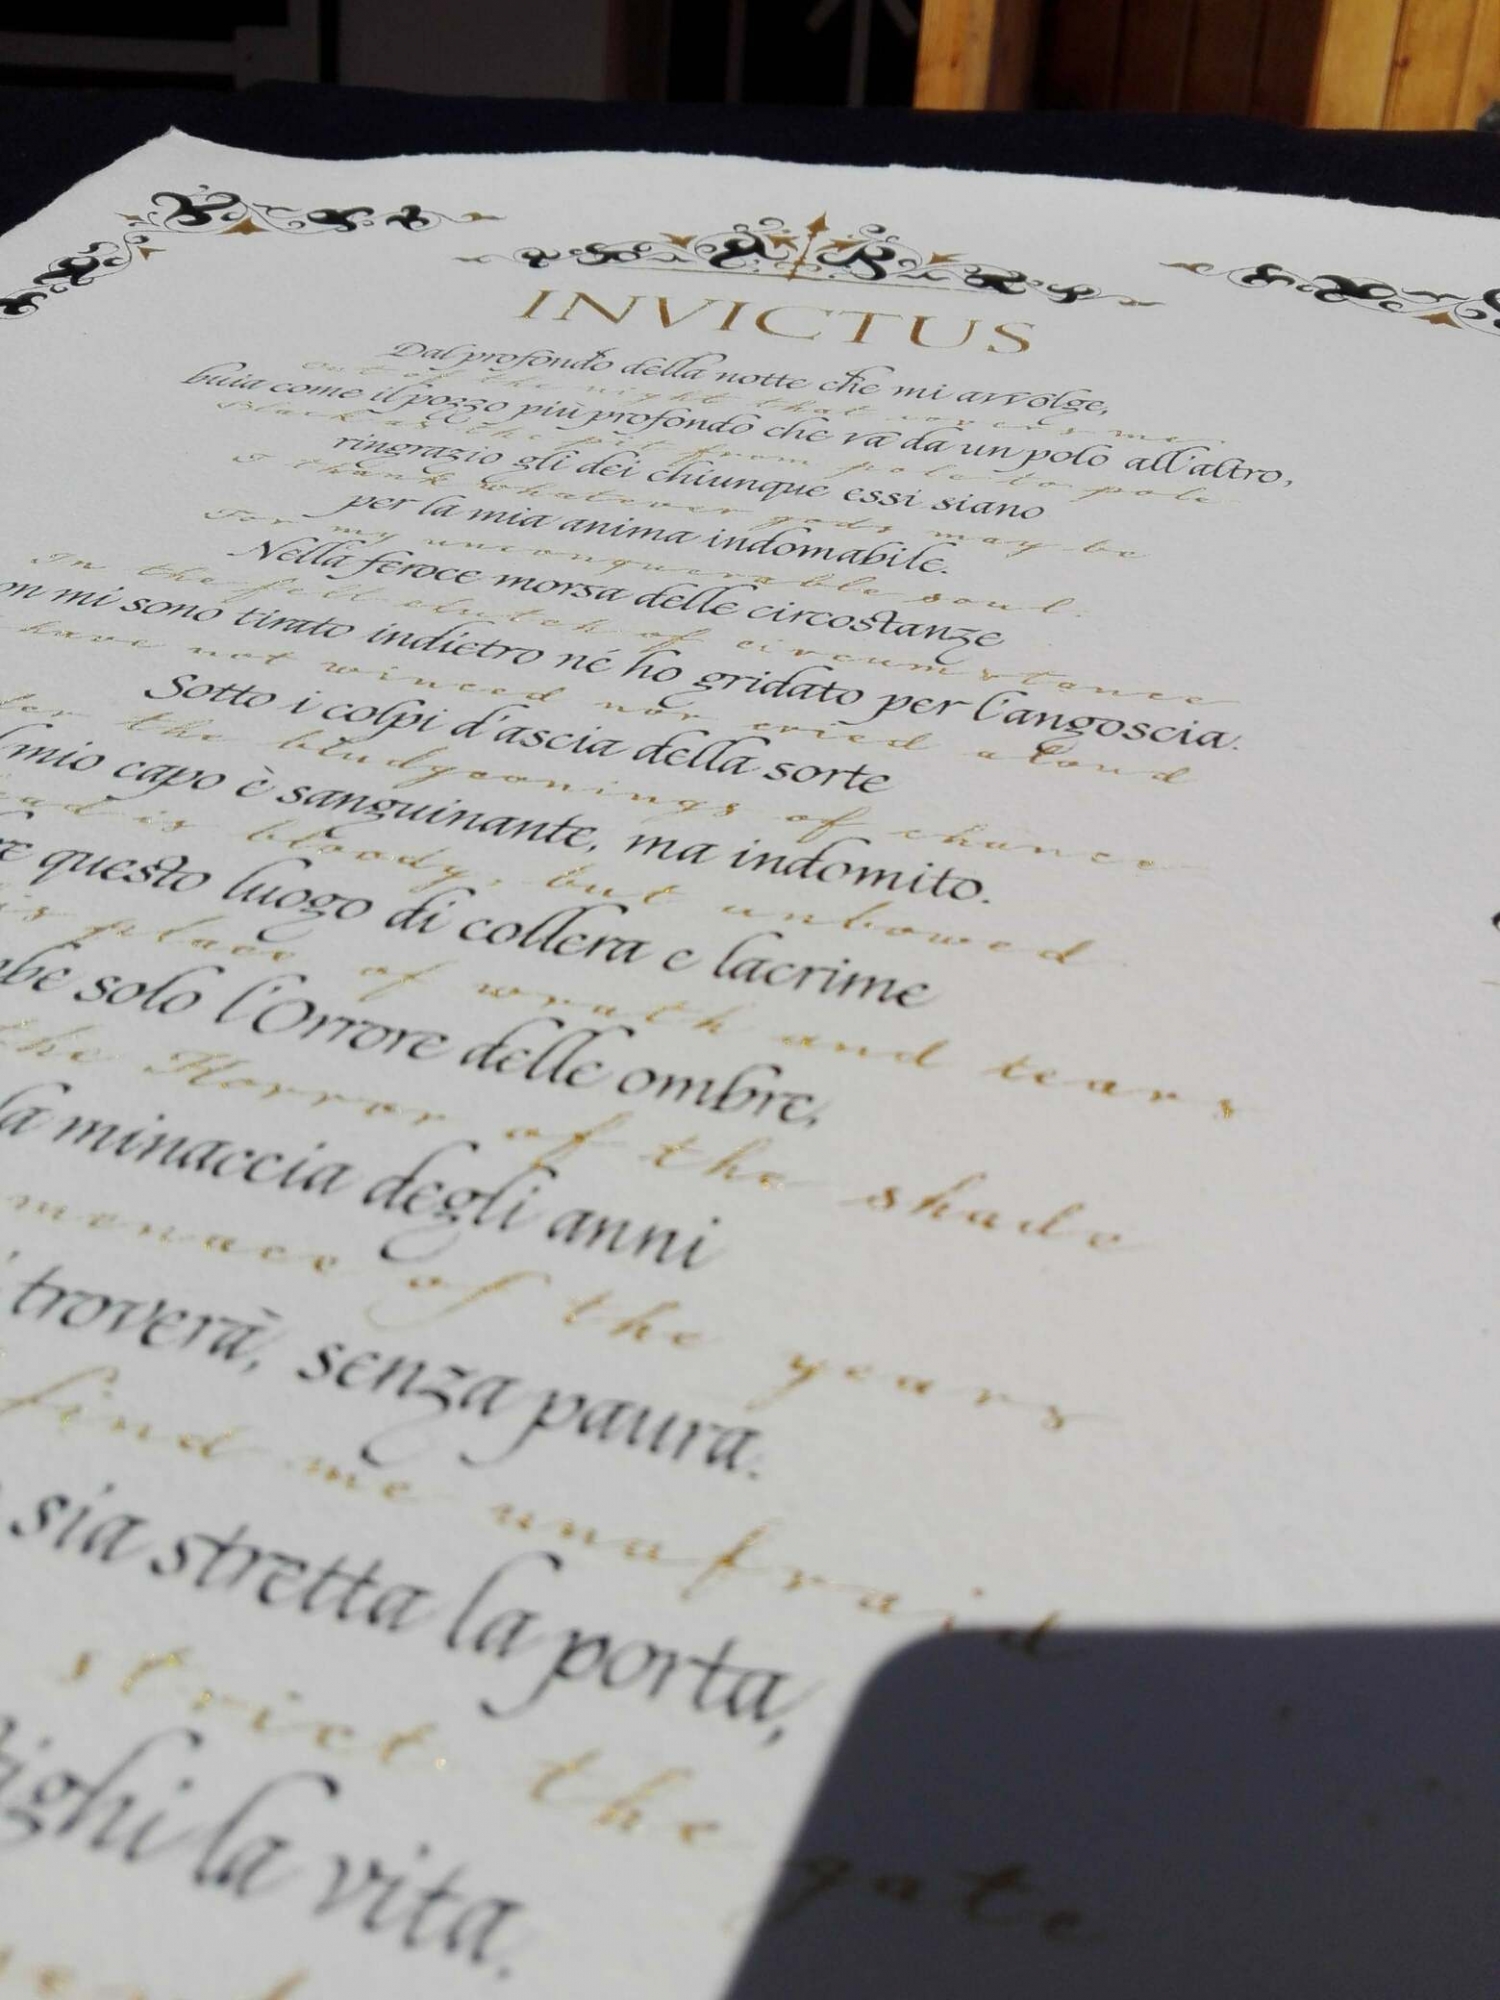 INVICTUS
Dal profondo della notte che mi avvolge,
Out of the night that covers me
buia come il pozzo più profondo che va da un polo all'altro,
Black as the pit from pole to pole
ringrazio gli dei chiunque essi siano
I thank whatever gods may be
per la mia anima indomabile.
For my unconquerable soul.
Nella feroce morsa delle circostanze
In the fell clutch of circumstance
mi sono tirato indietro né ho gridato per l'angoscia.
have not winced nor cried aloud
Sotto i colpi d'ascia della sorte
the bludgeonings of chance
mio capo è sanguinante, ma indomito.
is bloody, but unbowed
questo luogo di collera e lacrime
place of wrath and tears
solo l'Orrore delle ombre,
the Horror of the shade
la minaccia degli anni
menace of the years
troverà, senza paura.
find me unafraid
sia stretta la porta,
strict the gate
la vita.